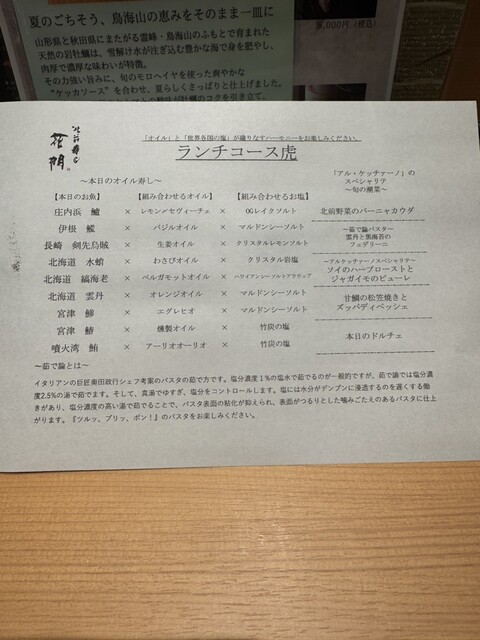 夏のごちそう、鳥海山の恵みをそのまま一皿に
山形県と秋田県にまたがる霊峰・鳥海山のふもとで育まれた
天然の岩牡蠣は、雪解け水が注ぎ込む豊かな海で身を肥やし、
肉厚で濃厚な味わいが特徴。
その力強い旨みに、旬のモロヘイヤを使った爽やかな
“ケッカソース”を合わせ、夏らしくさっぱりと仕上げました。
「オイル」と「世界各国の塩」が織りなすハーモニーをお楽しみください。
ランチコース虎
～本日のオイル寿し～
「アル・ケッチァーノ」の
スペシャリテ
～旬の潮菜～
【本日のお魚】 【組み合わせるオイル】 【組み合わせるお塩】
庄内浜 鱸 × レモン/セヴィーチェ × OGレイクソルト
北前野菜のバーニャカウダ
伊根 鰀 × バジルオイル × マルドンシーソルト
長崎 剣先烏賊 × 生姜オイル × クリスタルレモンソルト
～茹で論パスタ～
雲丹と黒海苔の
フェデリーニ
北海道 水蛸 × わさびオイル × クリスタル岩塩
北海道 縞海老 × ベルガモットオイル × ハワイアンシーソルトアラウェア
～アルケッチァーノスペシャリテ～
ソイのハーブローストと
ジャガイモのピューレ
北海道 雲丹 × オレンジオイル × マルドンシーソルト
宮津 鯵 × エグレヒオ × マルドンシーソルト
甘鯛の松笠焼きと
ズッパディペッシェ
宮津 鰆 × 燻製オイル × 竹炭の塩
噴火湾 鮪 × アーリオオーリオ × 竹炭の塩
本日のドルチェ
～茹で論とは～
イタリアンの巨匠奥田政行シェフ考案のパスタの茹で方です。塩分濃度１%の塩水で茹でるのが一般的ですが、茹で論では塩分濃
度2.5%の湯で茹でます。そして、真湯でゆすぎ、塩分をコントロールします。塩には水分がデンプンに浸透するのを遅くする働
きがあり、塩分濃度の高い湯で茹でることで、パスタ表面の粘化が抑えられ、表面がつるりとした噛みごたえのあるパスタに仕上
がります。『ツルッ、プリッ、ポン！』のパスタをお楽しみください。